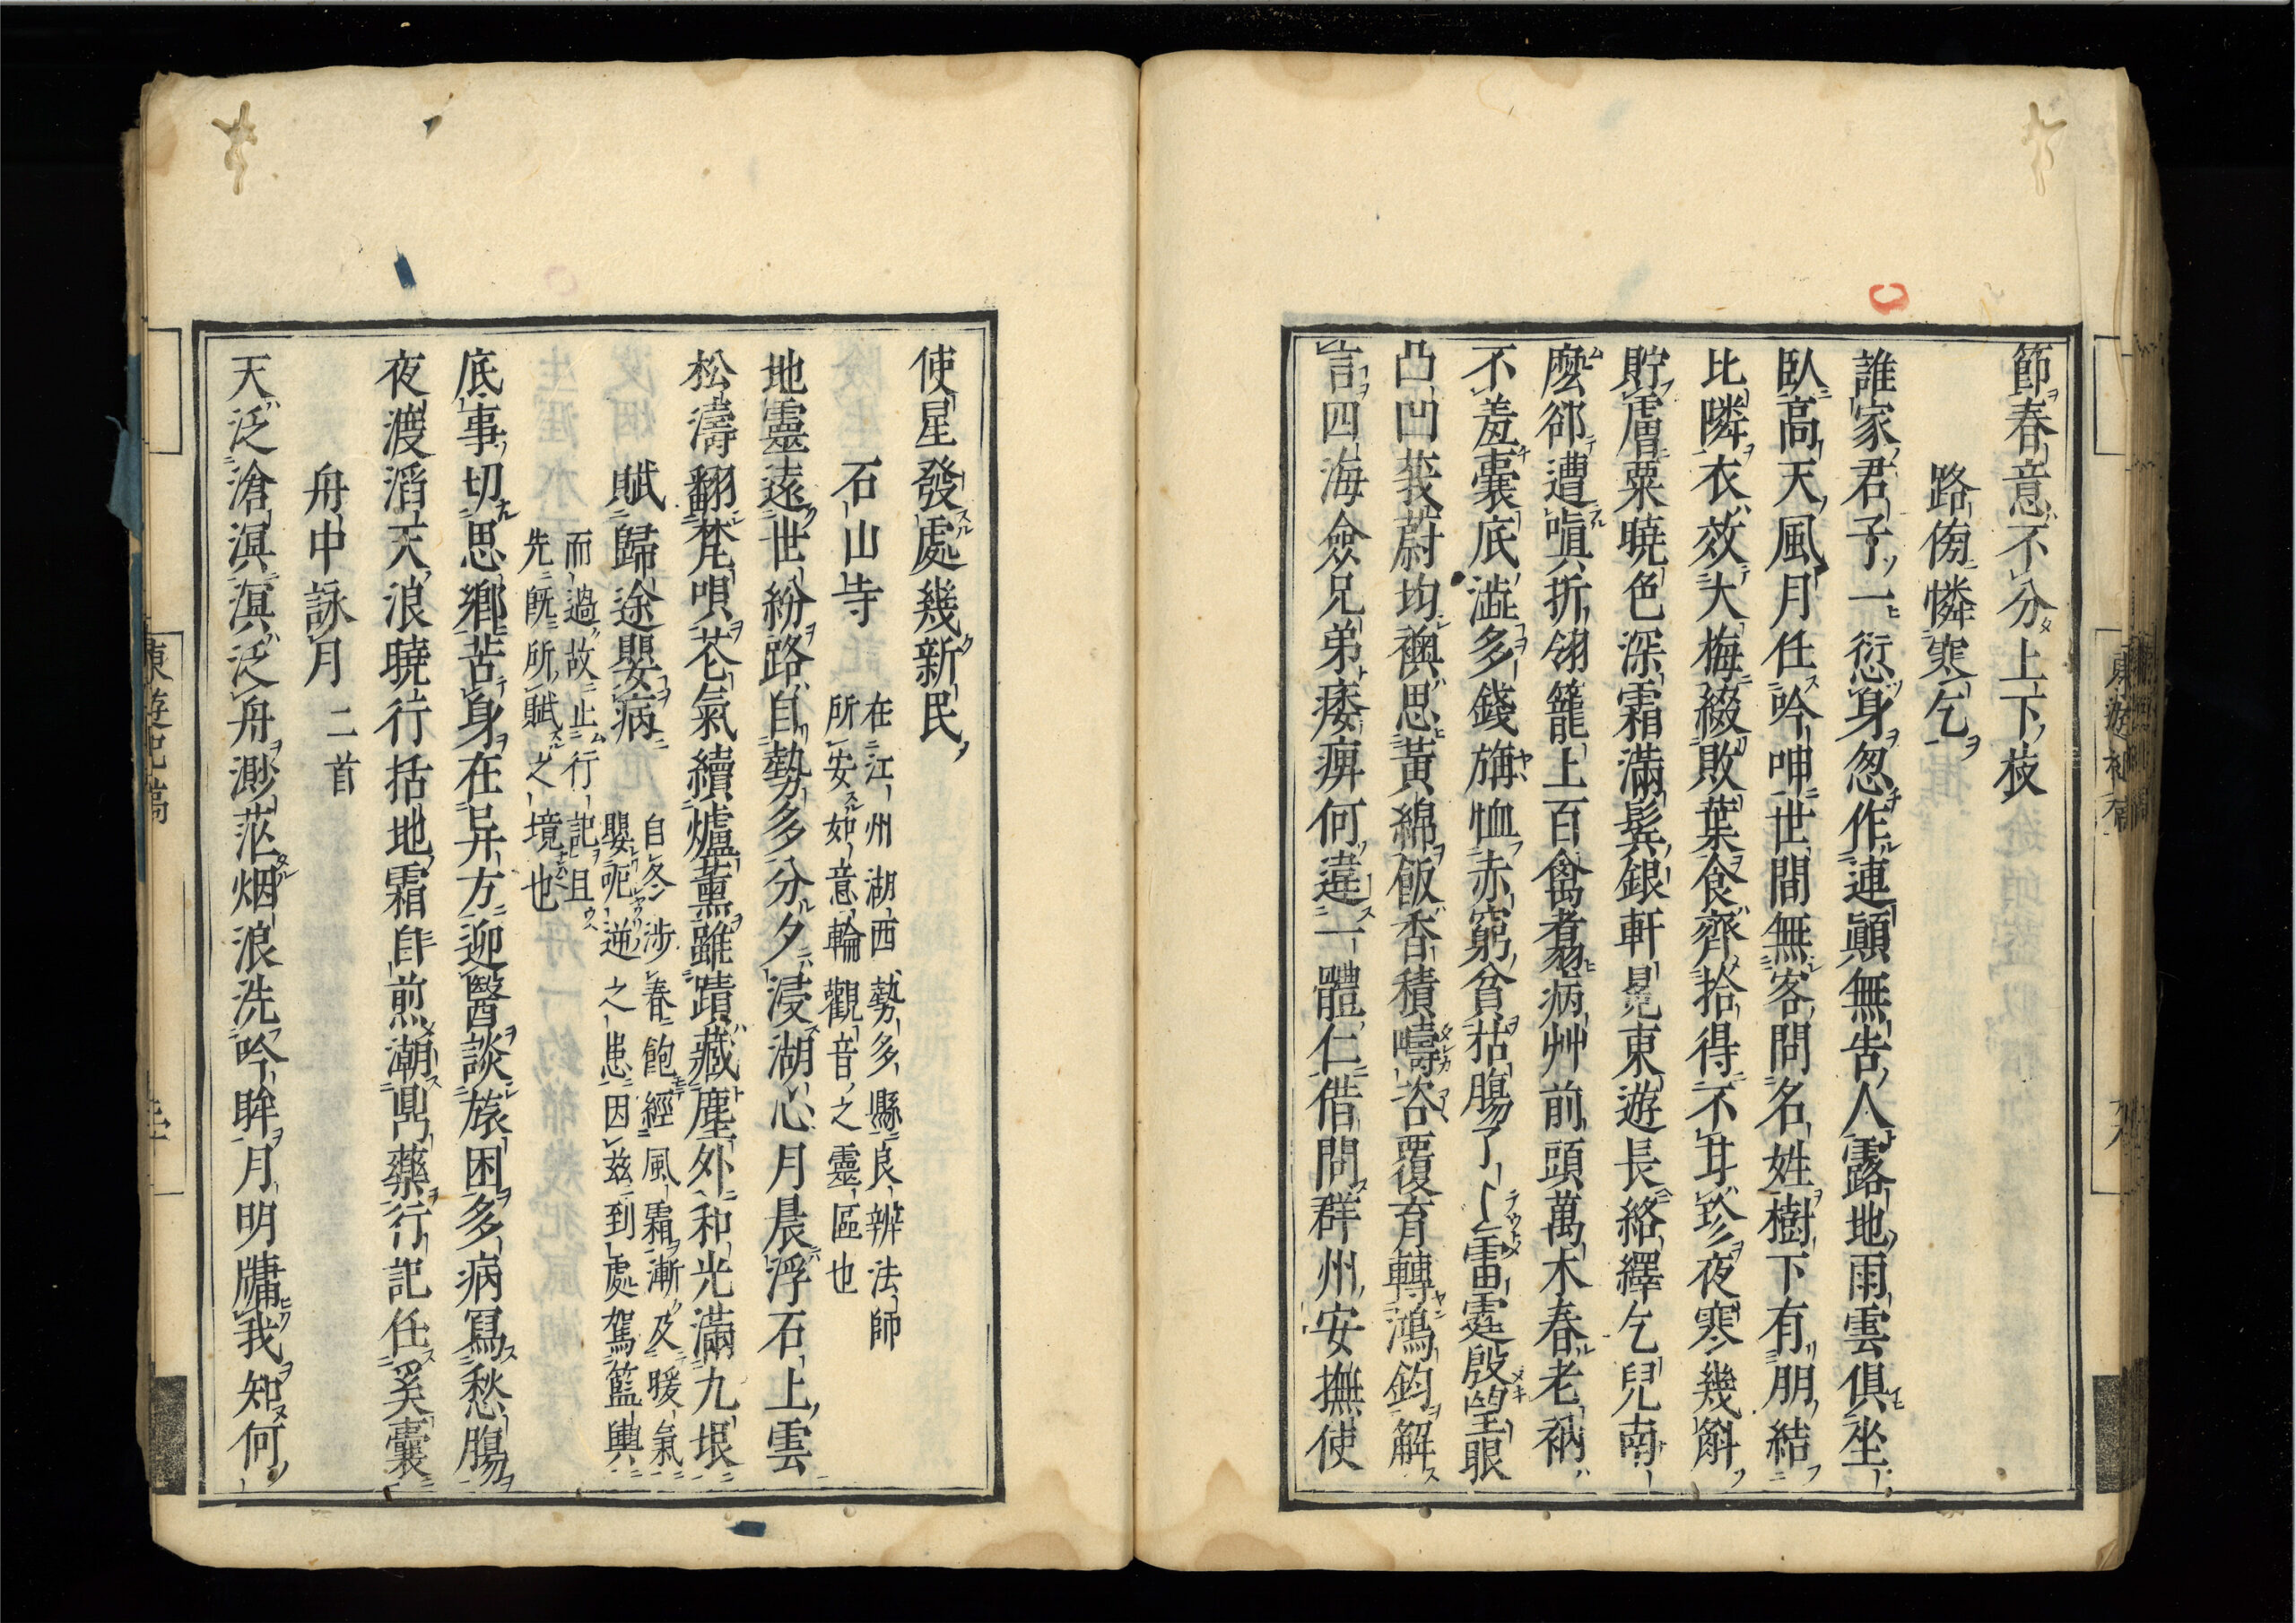 節春意不分上下枝
路傍憐寒乞
誰家君子一愆身忽作連顚無告人露地雨雲俱坐
臥高天風月任吟呻世間無客問名姓樹下有朋結
比隣衣效大梅綴敗葉食齊拾得不甘珍夜寒幾斛
貯膚粟曉色深霜滿鬂銀軒晃東遊長絡繹乞兒南
麼郤遭嗔折翎籠上百禽弱病艸前頭萬木春老衲
不羞囊底澁多錢旃恤赤窮貧枯膓了〻雷霆殷望眼
凸凹莪蔚均襖思黃綿飯香積疇咨覆育轉鴻鈞解
言四海僉兄弟痿痹何違一體仁借問群州安撫使
使星發處幾新民
石山寺 在江州湖西勢多縣良辨法師
所安如意輪觀音之靈區也
地靈遠世紛路自勢多分夕浸湖心月晨浮石上雲
松濤翻梵唄花氣續爐薰雖蹟藏塵外和光滿九垠
賦歸途嬰病 自冬涉春飽經風霜漸及暖氣
嬰呃逆之患因茲到處駕籃輿
而過故止行記且
先旣所賦之境也
底事切思鄉苦身在异方迎醫談旅困多病寫愁膓
夜渡滔天浪曉行括地霜自煎潮鼎藥行記任奚囊
舟中詠月 二首
天泛滄溟溟泛舟渺茫烟浪洗吟眸月明牗我知何